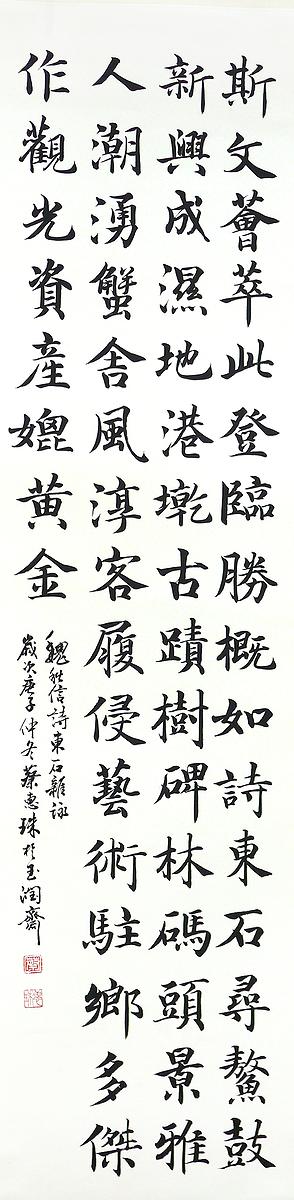 斯文薈萃此登臨勝概如詩東石尋鰲鼓
新興成濕地港墘古蹟樹碑林碼頭景雅
人潮湧蟹舍風淳客履侵藝術駐鄉多傑
作觀光資產媲黃金
魏秋信詩東石雜詠
歲次庚子仲冬蔡惠珠於玉潤齋